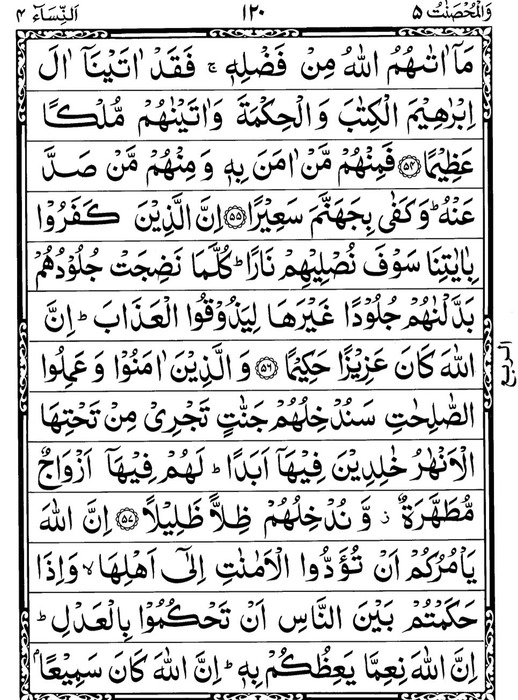 وَالْمُحْصَنٰتُ ۵ ١٢٠ اَلنِّسَآءِ ۴
مَاۤ اٰتٰىهُمُ اللّٰهُ مِنْ فَضْلِهٖ ۚ فَقَدْ اٰتَيْنَاۤ اٰلَ
اِبْرٰهِيْمَ الْكِتٰبَ وَالْحِكْمَةَ وَاٰتَيْنٰهُمْ مُّلْكًا
عَظِيْمًا ﴿۵۴﴾ فَمِنْهُمْ مَّنْ اٰمَنَ بِهٖ وَمِنْهُمْ مَّنْ صَدَّ
عَنْهُ ؕ وَكَفٰى بِجَهَنَّمَ سَعِيْرًا ﴿۵۵﴾ اِنَّ الَّذِيْنَ كَفَرُوْا
بِاٰيٰتِنَا سَوْفَ نُصْلِيْهِمْ نَارًا ؕ كُلَّمَا نَضِجَتْ جُلُوْدُهُمْ
بَدَّلْنٰهُمْ جُلُوْدًا غَيْرَهَا لِيَذُوْقُوا الْعَذَابَ ؕ اِنَّ
اللّٰهَ كَانَ عَزِيْزًا حَكِيْمًا ﴿۵۶﴾ وَالَّذِيْنَ اٰمَنُوْا وَعَمِلُوا
الصّٰلِحٰتِ سَنُدْخِلُهُمْ جَنّٰتٍ تَجْرِيْ مِنْ تَحْتِهَا
الْاَنْهٰرُ خٰلِدِيْنَ فِيْهَاۤ اَبَدًا ؕ لَهُمْ فِيْهَاۤ اَزْوَاجٌ
مُّطَهَّرَةٌ ؗ وَّنُدْخِلُهُمْ ظِلًّا ظَلِيْلًا ﴿۵۷﴾ اِنَّ اللّٰهَ
يَاْمُرُكُمْ اَنْ تُؤَدُّوا الْاَمٰنٰتِ اِلٰۤى اَهْلِهَا ۙ وَاِذَا
حَكَمْتُمْ بَيْنَ النَّاسِ اَنْ تَحْكُمُوْا بِالْعَدْلِ ؕ
اِنَّ اللّٰهَ نِعِمَّا يَعِظُكُمْ بِهٖ ؕ اِنَّ اللّٰهَ كَانَ سَمِيْعًۢا
الربع